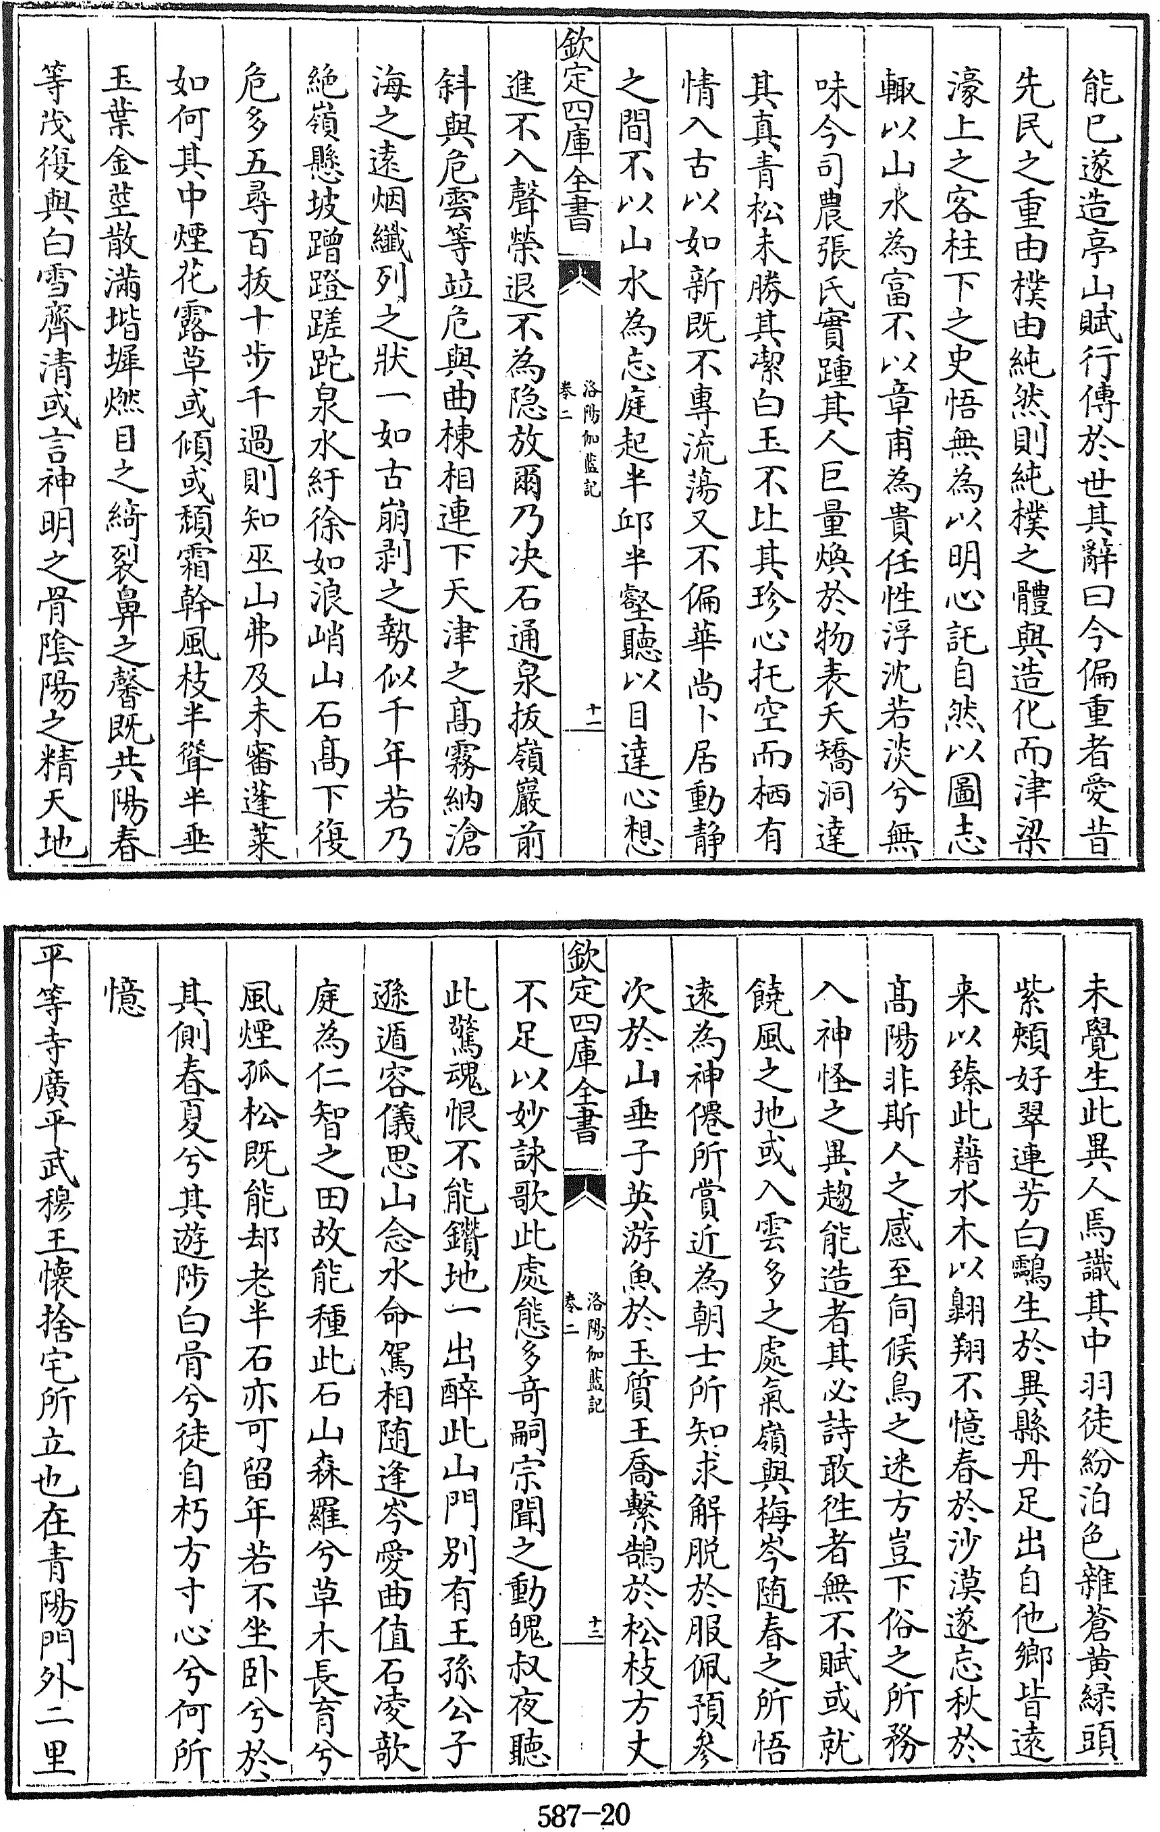 能已遂造亭山賦行傳於世其辭曰今偏重者愛昔
先民之重由樸由純然則純樸之體與造化而津梁
濠上之客柱下之史悟無為以明心託自然以圖志
輙以山水為富不以章甫為貴任性浮沈若淡兮無
味今司農張氏實踵其人巨量煥於物表夭矯洞達
其真青松未勝其潔白玉不比其珍心托空而栖有
情入古以如新既不專流蕩又不偏華尚卜居動静
之間不以山水為忘庭起半邱半壑聽以目達心想
欽定四庫全書
洛陽伽藍記
卷二
十一
進不入聲榮退不為隐放爾乃决石通泉拔嶺巖前
斜與危雲等竝危與曲棟相連下天津之髙霧納滄
海之遠烟纖列之狀一如古崩剥之勢似千年若乃
絶嶺懸坡蹭蹬蹉跎泉水紆徐如浪峭山石髙下復
危多五尋百拔十步千過則知巫山弗及未審蓬萊
如何其中煙花露草或傾或頽霜幹風枝半聳半垂
玉葉金莖散滿堦墀燃目之綺裂鼻之馨既共陽春
等茂復與白雪齊清或言神明之骨陰陽之精天地
未覺生此異人焉識其中羽徒紛泊色雜蒼黄緑頭
紫頰好翠連芳白鶴生於異縣丹足出自他鄉皆遠
来以臻此藉水木以翺翔不憶春於沙漠遂忘秋於
髙陽非斯人之感至伺候鳥之迷方豈下俗之所務
入神怪之異趨能造者其必詩敢徃者無不賦或就
饒風之地或入雲多之處氣嶺與梅岑随春之所悟
逺為神僊所賞近為朝士所知求解脱於服佩預參
次於山垂子英游魚於玉質王喬繫鵠於松枝方丈
欽定四庫全書
洛陽伽藍記
卷二
十二
不足以妙詠歌此處態多竒嗣宗聞之動魄叔夜聽
此驚魂恨不能鑚地一出醉此山門别有王孫公子
遜遁容儀思山念水命駕相随逢岑愛曲值石凌欹
庭為仁智之田故能種此石山森羅兮草木長育兮
風煙孤松既能却老半石亦可留年若不坐卧兮於
其側春夏兮其遊陟白骨兮徒自朽方寸心兮何所
憶
平等寺廣平武穆王懷捨宅所立也在青陽門外二里
587-20